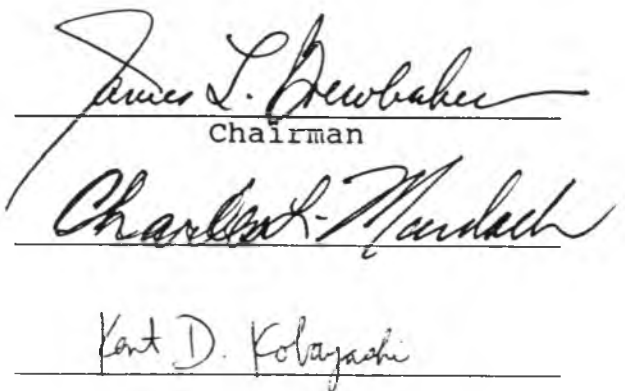 James L. Brewbaker
Chairman
Charles L. Murdoch
Kent D. Kobayashi